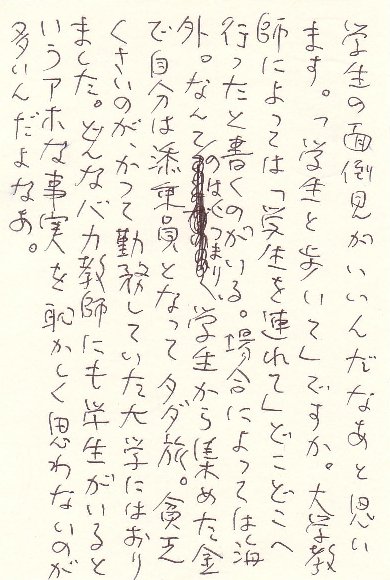 学生の面倒見がいいんだなあと思い
ます。「学生と歩いて」ですか。大学教
師によっては「学生を連れて」どこどこへ
行ったと書くのがいる。場合によっては海
外。なんてのはがつまり、学生から集めた金
で自分は添乗員となってタダ旅。貧乏
くさいのが、かつて勤務していた大学にはおり
ました。どんなバカ教師にも学生がいると
いうアホな事実を恥かしく思わないのが
多いんだよなあ。